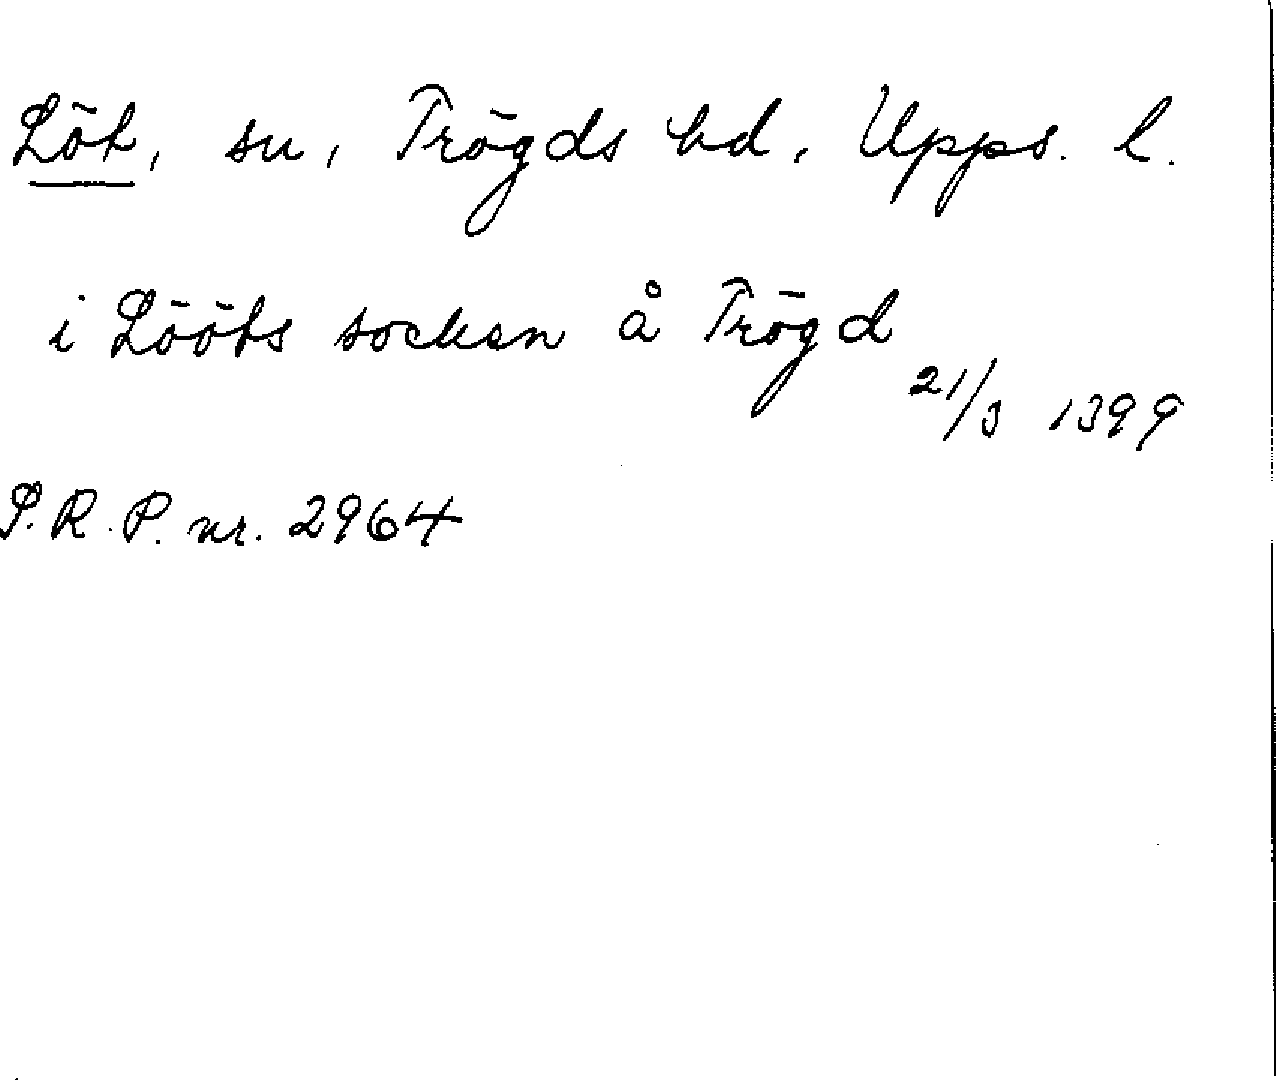 Löt, sn, Trögds hd, Upps. l.
i Lööts socken å Trögd
21/3 1399
S.R.P. nr. 2964